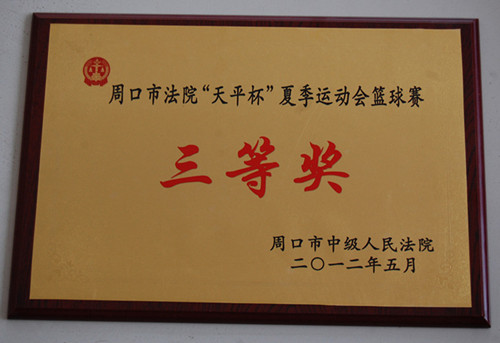 周口市法院“天平杯”夏季运动会篮球赛
三等奖
周口市中级人民法院
二〇一二年五月